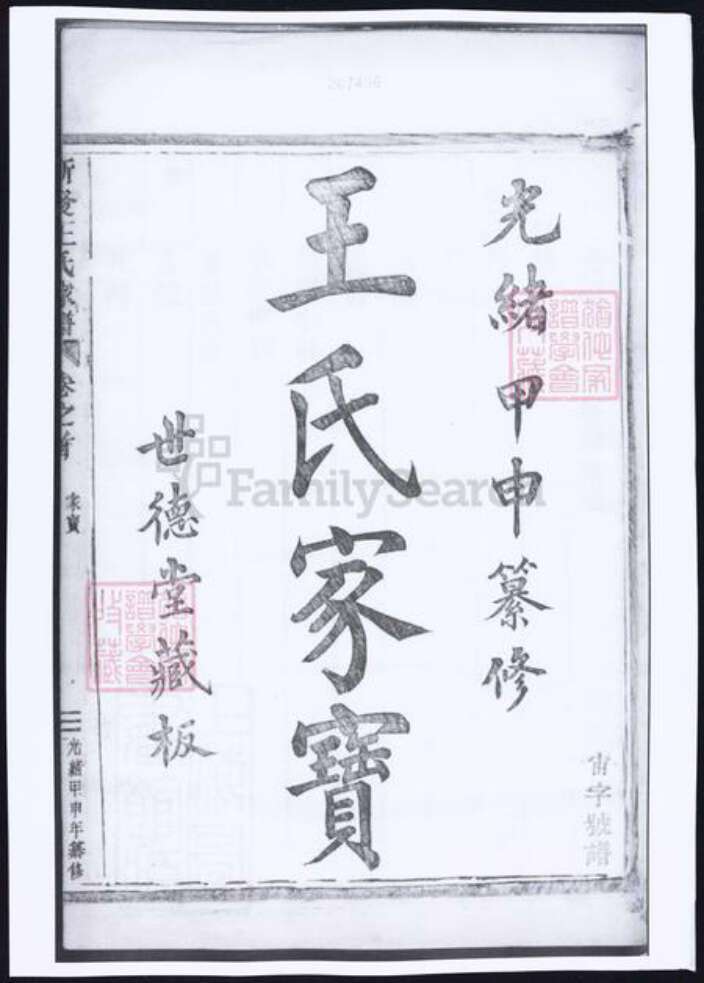 光緒甲申纂修
宙字號譜
王氏家寶
世德堂藏板
王氏家譜 卷之首 家寶 二 光緒甲申年纂修
譜學會
收藏
FamilySearch